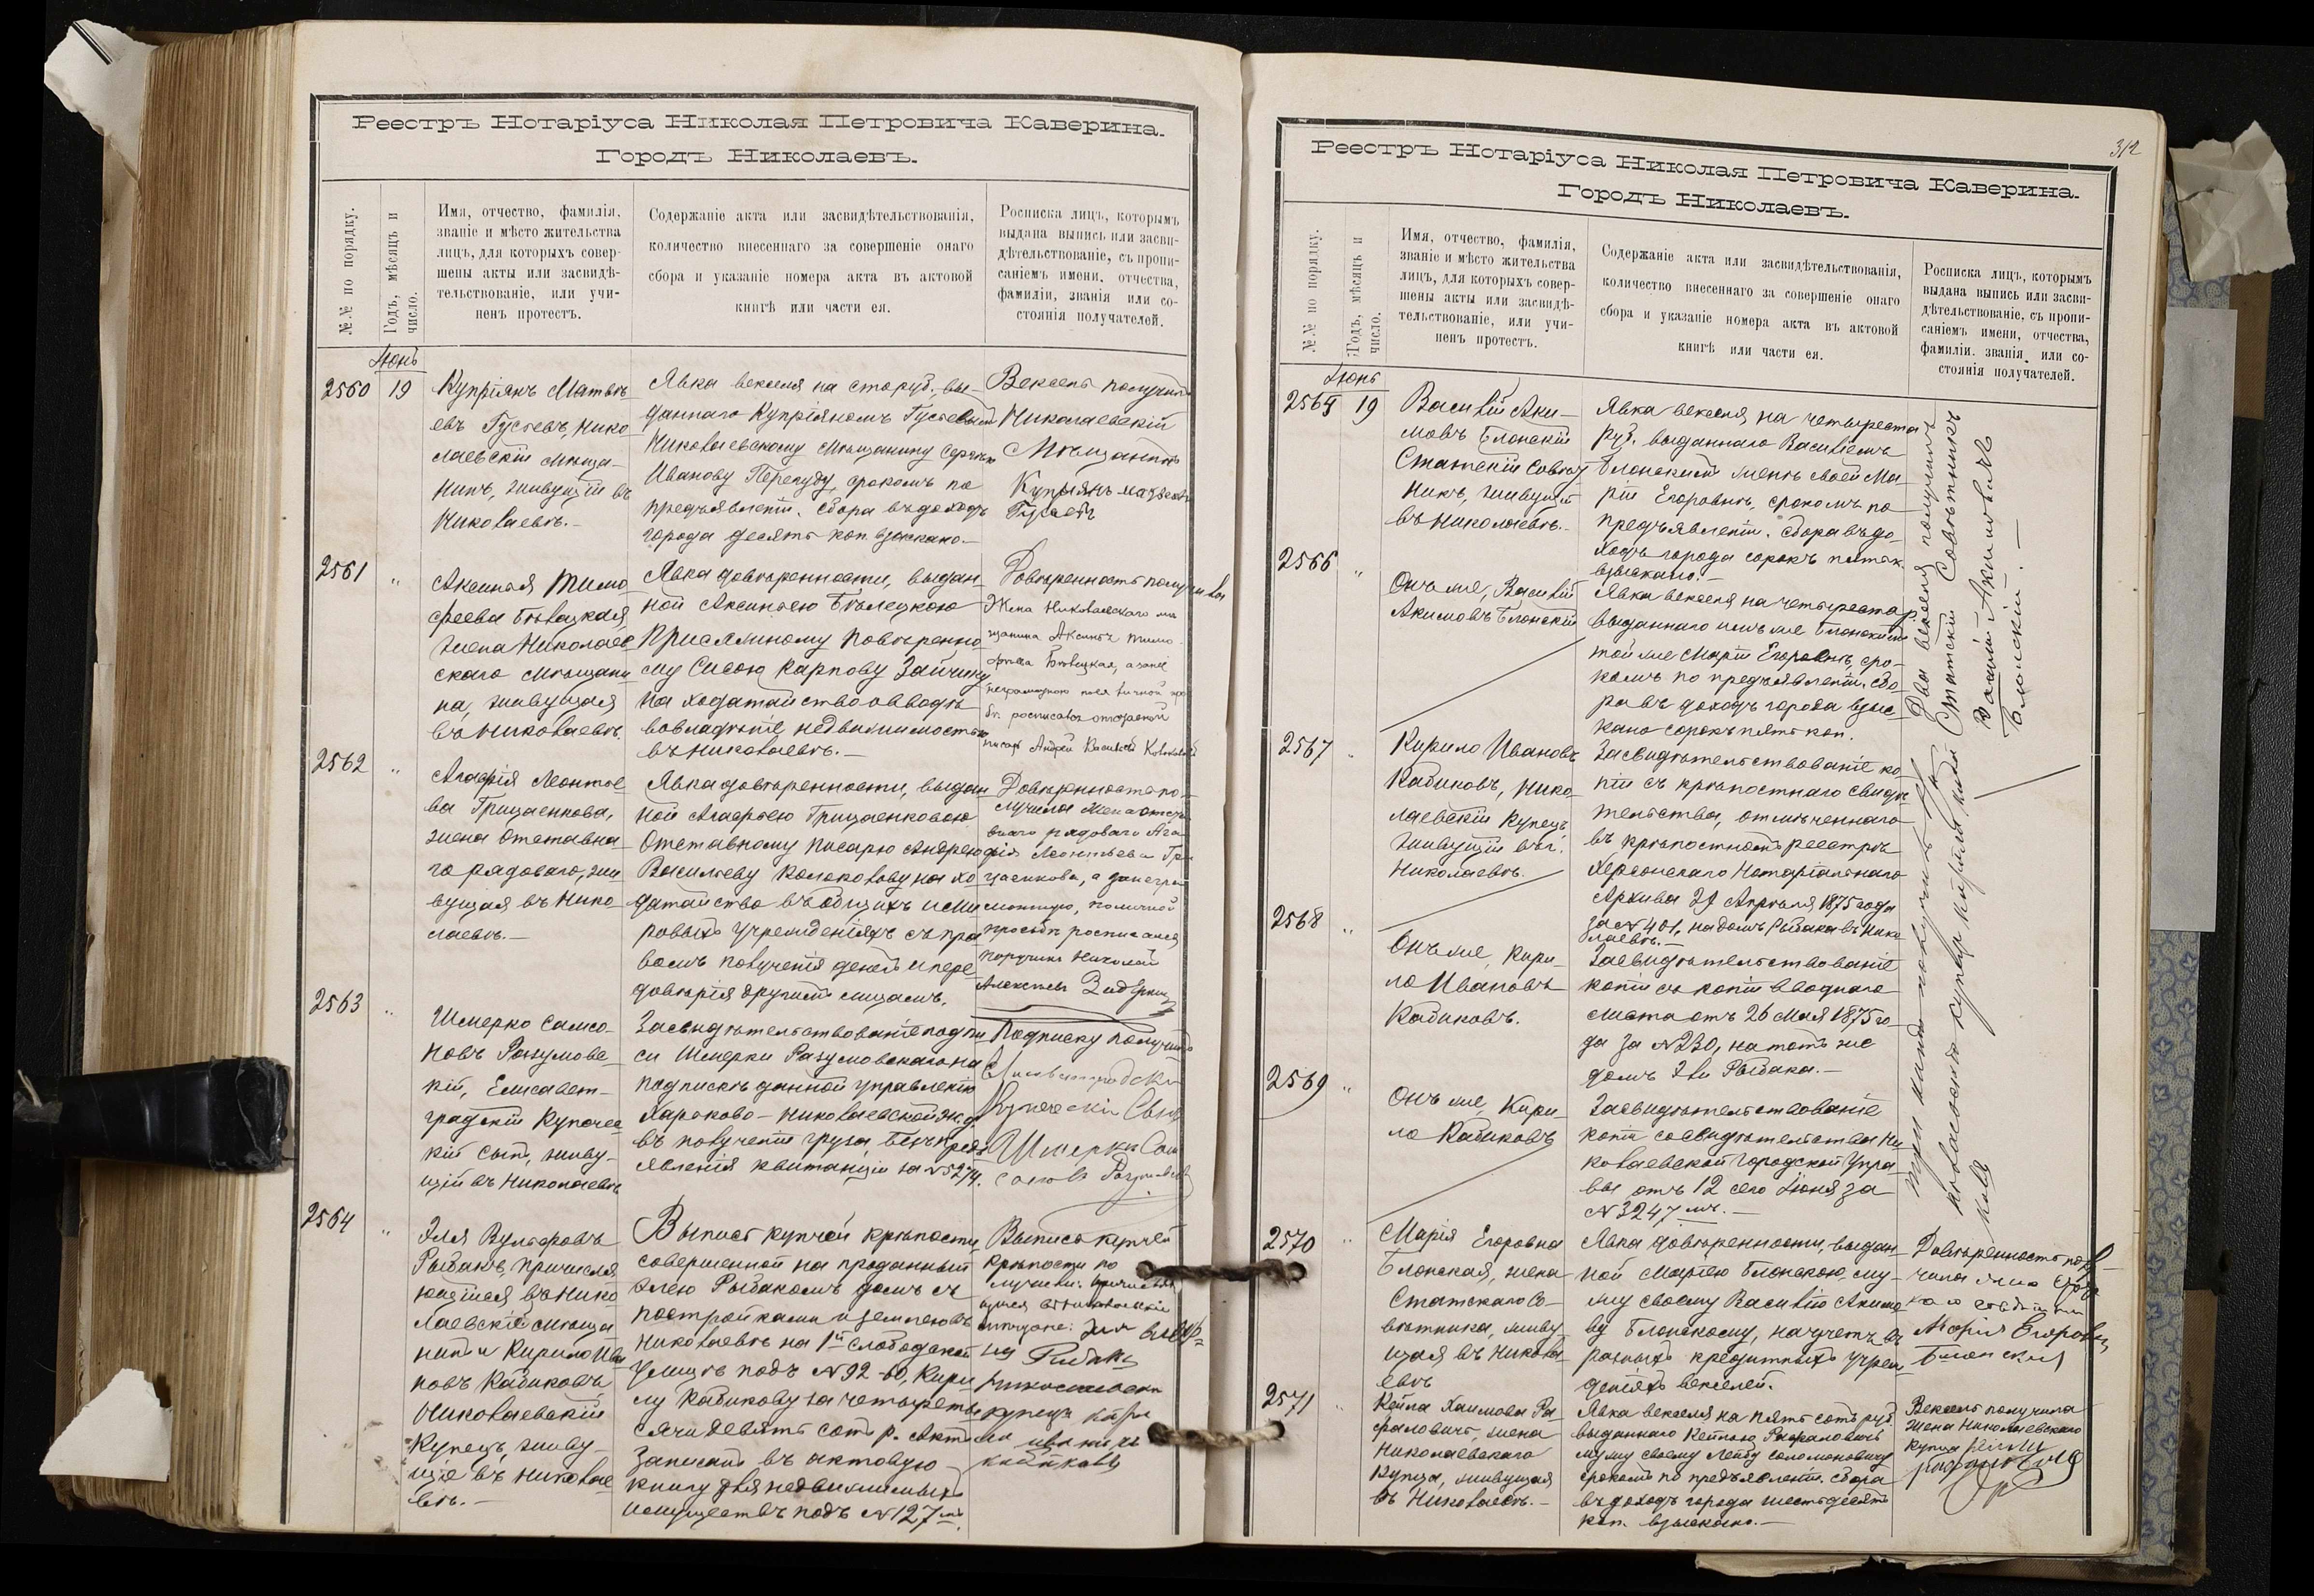 Реестръ Нотаріуса Николая Петровича Каверина.
Городъ Николаевъ.
№№ по порядку.
Годъ, мѣсяцъ и
число.
Имя, отчество, фамилія,
званіе и мѣсто жительства
лицъ, для которыхъ совер-
шены акты или засвидѣ-
тельствованіе, или учи-
ненъ протестъ.
Содержаніе акта или засвидѣтельствованія,
количество внесеннаго за совершеніе онаго
сбора и указаніе номера акта въ актовой
книгѣ или части ея.
Росписка лицъ, которымъ
выдана выпись или засви-
дѣтельствованіе, съ пропи-
саніемъ имени, отчества,
фамиліи, званія или со-
стоянія получателей.
Іюнь
2560
19
Купріянъ Матвѣ-
евъ Гусевъ, Нико
лаевскій мѣща-
нинъ, живущій въ
Николаевѣ.-
Явка векселя на сто руб., вы-
даннаго Купріяномъ Гусевымъ
Николаевскому мѣщанину Сергѣю
Иванову Перепуду, срокомъ по
предъявленіи. Сбора въ доходъ
города десять коп. взыскано.-
Вексель получилъ
Николаевскій
Мѣщанинъ
Купріянъ Матвѣевъ
Гусевъ
2561
"
Аксинья Тимо
феева Бѣлецкая
жена Николаев
скаго мѣщани
на, живущая
въ Николаевѣ.
Явка довѣренности, выдан-
ной Аксиньею Бѣлецкою
Присяжному повѣренно
му Сысою Карпову Зайчику
на ходатайство о вводѣ
во владѣніе недвижимостью
въ Николаевѣ.-
Довѣренность получила
Жена Николаевскаго мѣ
щанина Аксинья Тимо
феева Бѣлецкая, а за нее
неграмотною по ея личной про
бѣ росписался отставной
писарь Андрей Васильевъ
2562
"
Агафія Леонтье
ва Грицаенкова,
жена отставна
го рядоваго, жи
вущая въ Нико
лаевѣ.-
Явка довѣренности, выдан
ной Агафьею Грицаенковою
Отставному писарю Андрею
Васильеву Колоколову на хо
датайство въ общихъ и ми
ровыхъ учрежденіяхъ съ пра
вомъ полученія денегъ и пере
довѣрія другимъ лицамъ.
Довѣренность по-
лучила жена отстав
ного рядоваго Ага
фія Леонтьева Гри
цаенкова, а за негра
мотную, по личной
просьбѣ росписался
поручикъ Николай
Алексѣевъ
2563
"
Шмерко Самсо-
новъ Разумовс-
кій, Елисавет-
градскій Купечес
кій сынъ, живу-
щій въ Николаевѣ
Засвидѣтельствованіе подпи
си Шмерки Разумовскаго на
подпискѣ данной управленію
Харьково-Николаевской ж. д.
въ полученіи груза, безъ предъ
явленія квитанціи за №5274.
Подписку получилъ
Елисаветградскій
Купеческій Сынъ
Шмерки Сам
соновъ Разумовскій
2564
"
Эля Вульфовъ
Рыбакъ, причисля
ющійся въ Нико
лаевскіе мѣща
нинъ и Кирило Ива
новъ Кабиковъ
Николаевскій
Купецъ, живу-
щіе въ Николае
вѣ.-
Выпись купчей крѣпости,
совершенной на проданный
Элею Рыбакомъ домъ съ
постройками и землею въ
Николаевѣ на 1й слободской
улицѣ подъ №92-60, Кири
лу Кабикову за четыре ты
сячи девять сотъ р. Актъ
записанъ въ актовую
книгу для недвижимыхъ
имуществъ подъ №127мъ.
Выпись купчей
крѣпости по
лучили: причисля
ющійся въ Николаевскіе
мѣщане: Эля Вульф
овъ Рибакъ
Николаевскій
купецъ Кири
ло Ивановъ
Кабиковъ
312
Реестръ Нотаріуса Николая Петровича Каверина.
Городъ Николаевъ.
№№ по порядку.
Годъ, мѣсяцъ и
число.
Имя, отчество, фамилія,
званіе и мѣсто жительства
лицъ, для которыхъ совер-
шены акты или засвидѣ-
тельствованіе, или учи-
ненъ протестъ.
Содержаніе акта или засвидѣтельствованія,
количество внесеннаго за совершеніе онаго
сбора и указаніе номера акта въ актовой
книгѣ или части ея.
Росписка лицъ, которымъ
выдана выпись или засви-
дѣтельствованіе, съ пропи-
саніемъ имени, отчества,
фамиліи. званія. или со-
стоянія получателей.
Іюнь
2565
19
Василій Аки-
мовъ Блонскій
Статскій Совѣт
никъ, живущій
въ Николаевѣ.-
Явка векселя, на четыреста
руб. выданнаго Василіемъ
Блонскимъ женѣ своей Ма-
ріи Егоровнѣ, срокомъ по
предъявленіи. Сбора въ до-
ходъ города сорокъ пять к.
взыскано.-
2566
"
Онъ же, Василій
Акимовъ Блонскій
Явка векселя на четыреста р.
выданнаго имъ же Блонскимъ
той же Маріи Егоровнѣ, сро-
комъ по предъявленіи. Сбо-
ра въ доходъ города взыс-
кано сорокъ пять коп.
Два векселя получилъ
Статскій Совѣтникъ
Василій Акимовичъ
Блонскій.-
2567
"
Кирило Ивановъ
Кабиковъ, Нико-
лаевскій Купецъ
живущій въ г.
Николаевѣ.
Засвидѣтельствованіе ко-
піи съ крѣпостнаго свидѣ
тельства, отмѣченнаго
въ крѣпостномъ реестрѣ
Херсонскаго Нотаріальнаго
Архива 29 Апрѣля 1875 года
за №401, на домъ Рыбака въ Нико
лаевѣ.-
2568
"
Онъ же, Кири-
ло Ивановъ
Кабиковъ.
Засвидѣтельствованіе
копіи съ копіи вводнаго
листа отъ 26 Мая 1875 го-
да за №230, на тотъ же
домъ Эли Рыбака.-
2569
"
Онъ же, Кири-
ло Кабиковъ
Засвидѣтельствованіе
копіи со свидѣтельства Ни
колаевской Городской Упра-
вы отъ 12 сего Іюня за
№3247мъ.-
Три копіи получилъ Ни
колаевскій купецъ Кирила Каби
ковъ
2570
"
Марія Егоровна
Блонская, жена
Статскаго Со-
вѣтника, живу-
щая въ Никола-
евѣ
Явка довѣренности, выдан-
ной Маріею Блонскою, му-
жу своему Василію Акимо
ву Блонскому, на учетъ въ
разныхъ кредитныхъ учреж
деніяхъ векселей.
Довѣренность полу-
чила жена Стат
скаго совѣтника
Марія Егоровна
Блонская
2571
"
Кейла Хаимова Ра-
фаловичъ, жена
Николаевскаго
Купца, живущая
въ Николаевѣ.-
Явка векселя на пять сотъ руб.
выданнаго Кейлою Рафаловичъ
мужу своему Лейбѣ Соломоновичу
срокомъ по предъявленіи. Сбора
въ доходъ города шестьдесятъ
коп. взыскано.-
Вексель получила
жена Николаевскаго
купца Кейла
Рафаловичъ